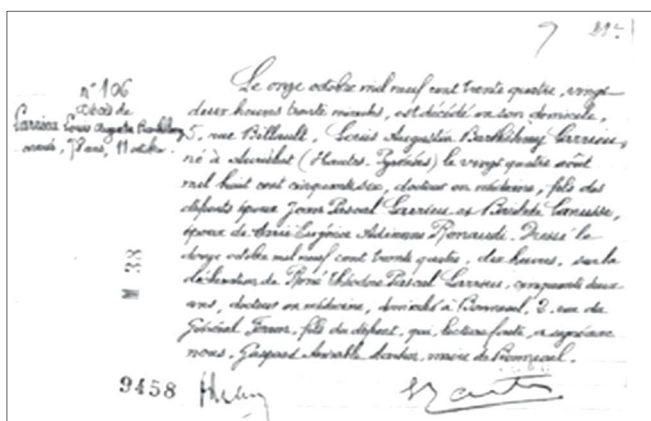 n° 106
Décès de
Larrieu Louis Augustin Barthélemy
marié, 78 ans, 11 octobre.
Le onze octobre mil neuf cent trente quatre, vingt
deux heures trente minutes, est décédé en son domicile,
5, rue Billault, Louis Augustin Barthélemy Larrieu,
né à (Hautes-Pyrénées) le vingt quatre août
mil huit cent cinquante six, docteur en médecine, fils des
défunts époux Jean Pascal Larrieu et
époux de Marie Eugénie Adrienne Renaude. Dressé le
douze octobre mil neuf cent trente quatre, dix heures, sur la
déclaration de René Théodore Pascal Larrieu, cinquante deux
ans, docteur en médecine, domicilié à 2, rue du
Général fils du défunt, qui, lecture faite, a signé avec
nous, Gaspard maire de
9458